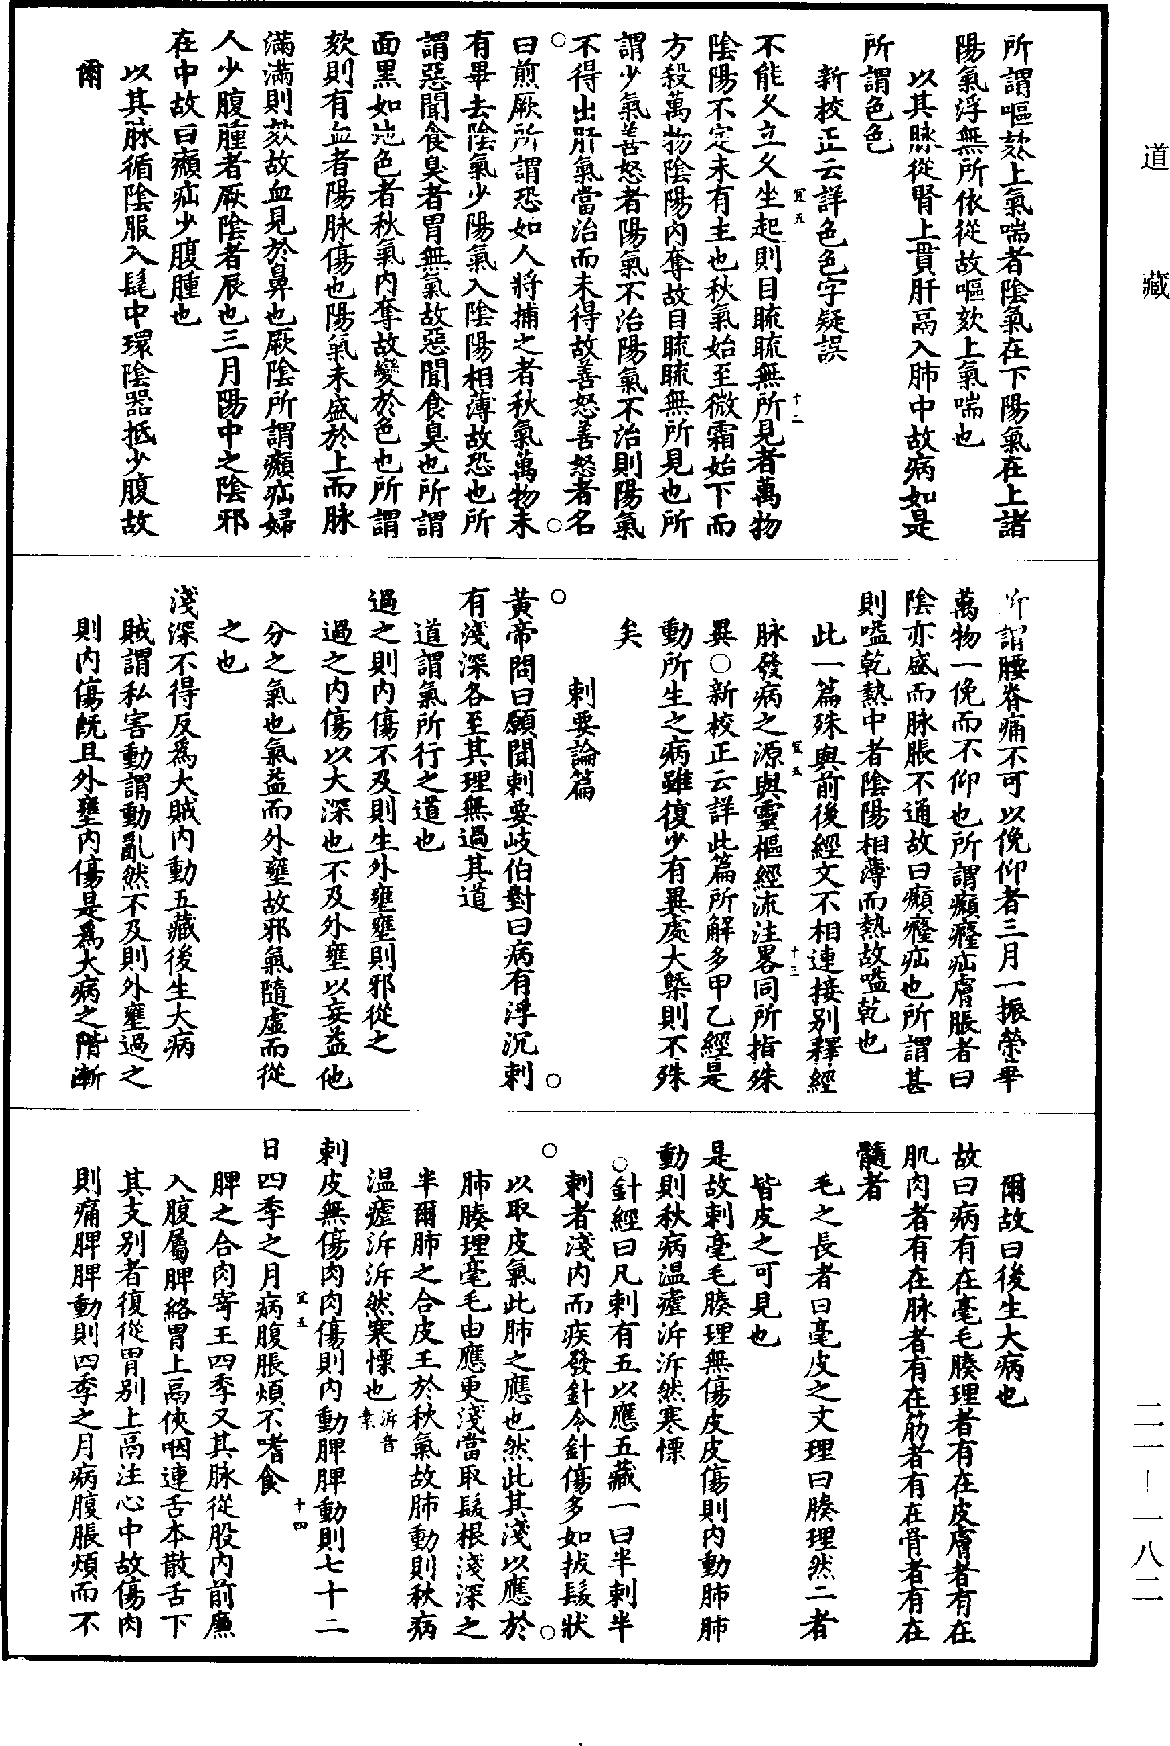 道藏
所謂嘔欬上氣喘者陰氣在下陽氣在上諸
陽氣浮無所依從故嘔欬上氣喘也
以其脉從腎上貫肝鬲入肺中故病如是
所謂色色
新校正云詳色色字疑誤
不能久立久坐起則目䀮䀮無所見者萬物
宜五
十二
陰陽不定未有主也秋氣始至微霜始下而
方殺萬物陰陽內奪故目䀮䀮無所見也所
謂少氣善怒者陽氣不治陽氣不治則陽氣
不得出肝氣當治而未得故善怒善怒者名
曰煎厥所謂恐如人將捕之者秋氣萬物未
有畢去陰氣少陽氣入陰陽相薄故恐也所
謂惡聞食臭者胃無氣故惡聞食臭也所謂
面黑如地色者秋氣內奪故變於色也所謂
欬則有血者陽脉傷也陽氣未盛於上而脉
滿滿則欬故血見於鼻也厥陰所謂㿗疝婦
人少腹腫者厥陰者辰也三月陽中之陰邪
在中故曰㿗疝少腹腫也
以其脉循陰股入髦中環陰器抵少腹故
爾
所謂腰脊痛不可以俛仰者三月一振榮華
萬物一俛而不仰也所謂㿗癃疝膚脹者曰
陰亦盛而脉脹不通故曰㿗癃疝也所謂甚
則嗌乾熱中者陰陽相薄而熱故嗌乾也
此一篇殊與前後經文不相連接别釋經
脉發病之源與靈樞經流注畧同所指殊
宜五
十三
異○新校正云詳此篇所解多甲乙經是
動所生之病雖復少有異處大槩則不殊
矣
刺要論篇
黃帝問曰願聞刺要岐伯對曰病有浮沉刺
有淺深各至其理無過其道
道謂氣所行之道也
過之則內傷不及則生外壅壅則邪從之
過之內傷以大深也不及外壅以妄益他
分之氣也氣益而外壅故邪氣隨虛而從
之也
淺深不得反爲大賊內動五藏後生大病
賊謂私害動謂動亂然不及則外壅過之
則內傷旣且外壅內傷是爲大病之階漸
爾故曰後生大病也
故曰病有在毫毛腠理者有在皮膚者有在
肌肉者有在脉者有在筋者有在骨者有在
髓者
毛之長者曰毫皮之文理曰腠理然二者
皆皮之可見也
是故刺毫毛腠理無傷皮皮傷則內動肺肺
動則秋病温瘧泝泝然寒慄
○針經曰凡刺有五以應五藏一曰半刺半
刺者淺內而疾發針令針傷多如拔髮狀
以取皮氣此肺之應也然此其淺以應於
肺腠理毫毛由應更淺當取髮根淺深之
半爾肺之合皮王於秋氣故肺動則秋病
温瘧泝泝然寒慄也泝音素
刺皮無傷肉肉傷則內動脾脾動則七十二
宜五
十四
日四季之月病腹脹煩不嗜食
脾之合肉寄王四季又其脉從股內前廉
入腹屬脾絡胃上鬲俠咽連舌本散舌下
其支别者復從胃别上鬲注心中故傷肉
則痛脾脾動則四季之月病腹脹煩而不
二一—一八二